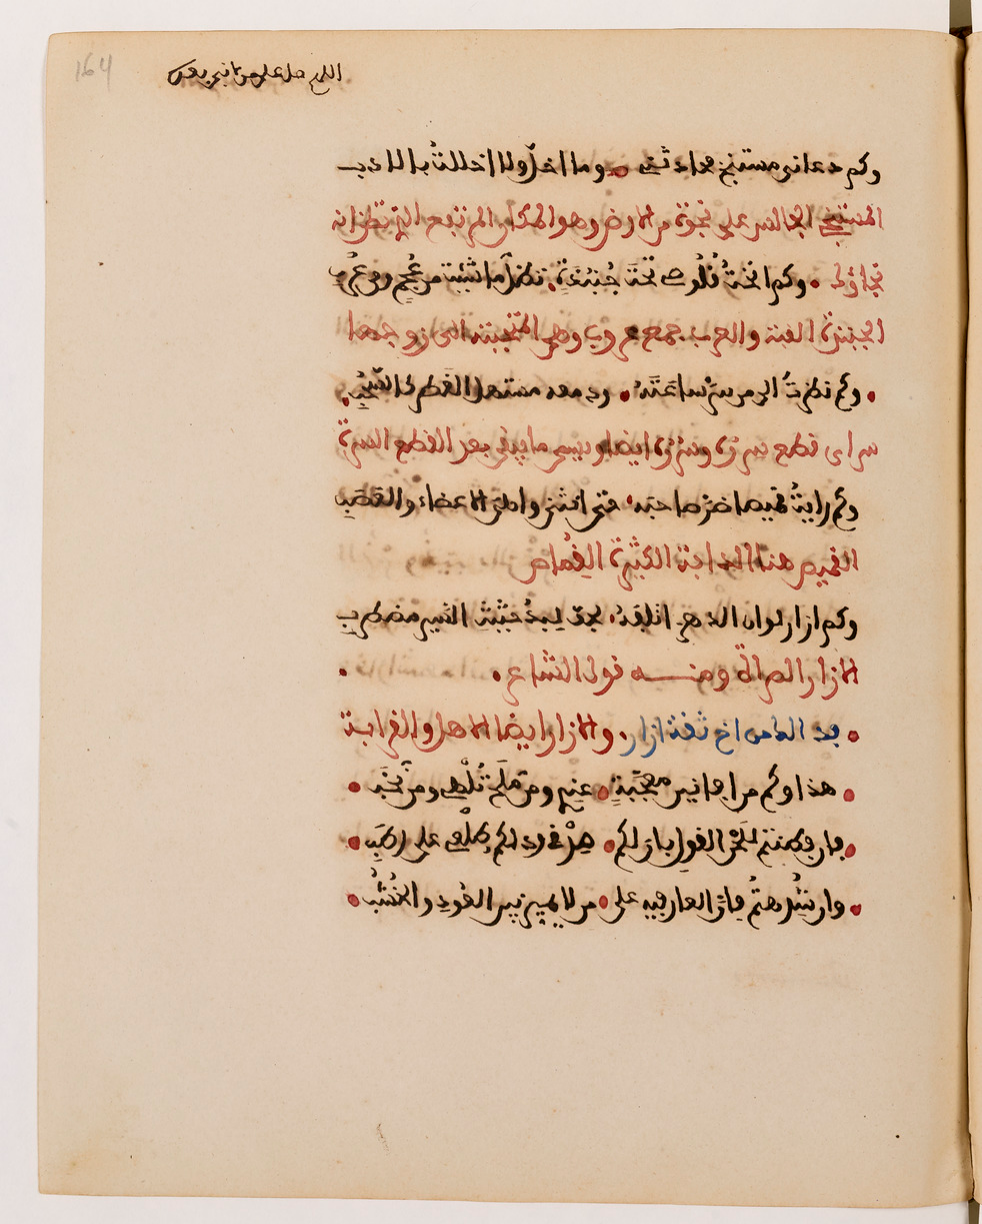 164
اللهم صل على من لا نبي بعده
وكم دعاني مستنج فحادثني • وما اخل ولا اخللت بالادب
المستنجي الجالس على نجوة من الارض وهو المكان المرتفع الذي تظن انه
نجاؤك • وكم انخت قلوصي تحت جنبذة • تظل ما شئت من عجم ومن عرب
الجنبذة القبة والعرب جمع عروب وهي المتحببة الى زوجها
• وكم نظرت الى من سر ساعته • ودمعه مستهل القطر كالسحب •
سر اي قطع سره وسرره ايضا ويسمى ما يبقى بعد القطع السرة
وكم رايت قميصا ضر صاحبه • حتى انثنى واهي الاعضاء والقصب
القميص هنا الدابة الكثيرة القماص
وكم ازار لو ان الدهر اتلفه • لجف لبد حثيث السير مضطرب
الازار المراة ومنه قول الشاعر •
• فدى لك من اخي ثقة ازار • والازار ايضا الاهل والقرابة
• هذا وكم من افانين معجبة • عندي ومن ملح تلهي ومن نخب •
• فان فطنتم للحن القول بان لكم • صدقي ودلكم طلعي على رطبي •
• وان شدهتم فان العار فيه على • من لا يميز بين العود والخشب •